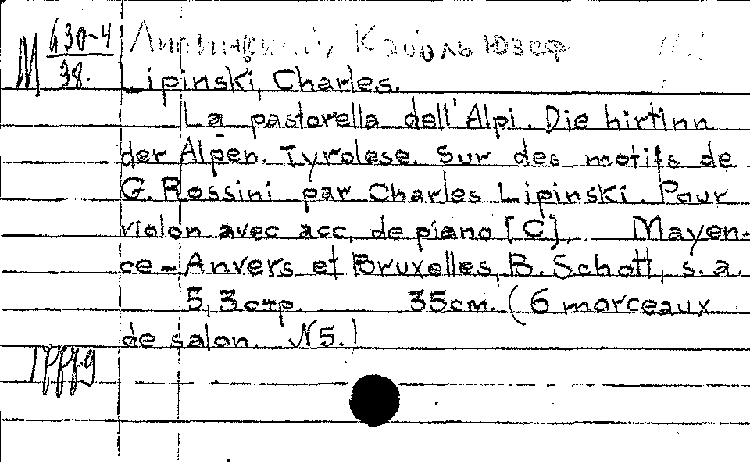 М 630-4
38.
Липинский, Кароль Юзеф
Lipinski, Charles.
La pastorella dell'Alpi. Die hirtinn
der Alpen. Tyrolese. Sur des motifs de
G. Rossini par Charles Lipinski. Pour
violon avec acc. de piano [C]. Mayen-
ce-Anvers et Bruxelles, B. Schott, s. a.
5, 3 стр. 35 см. (6 morceaux
de salon. N5.)